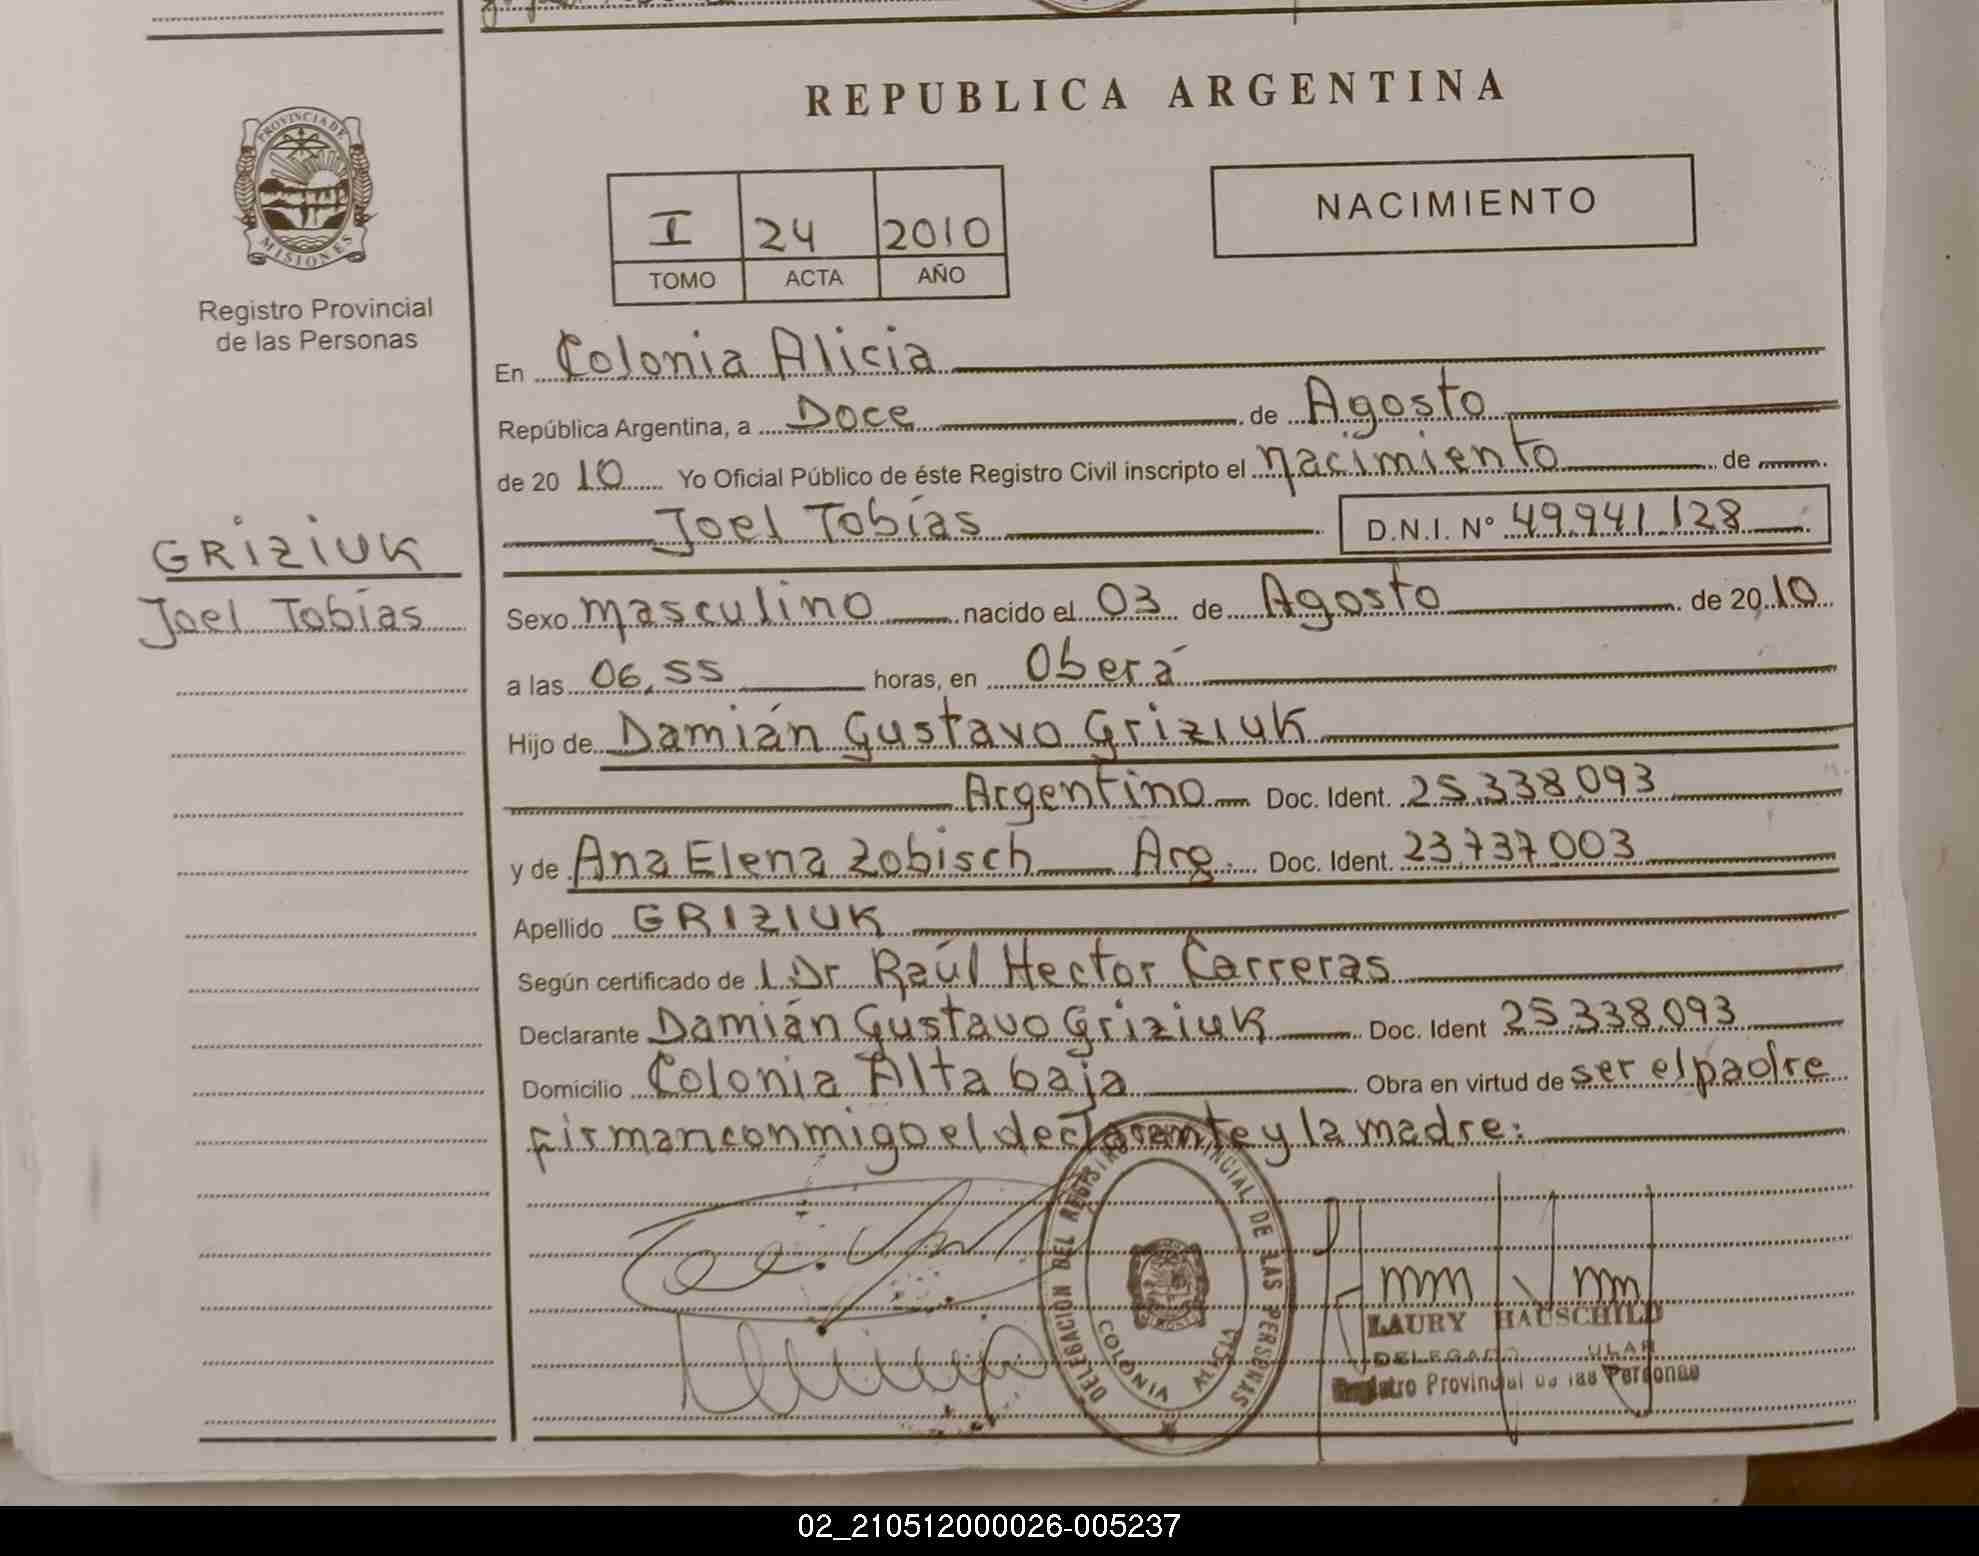 REPUBLICA ARGENTINA
PROVINCIA DE
MISIONES
Registro Provincial
de las Personas
I 24 2010
TOMO ACTA AÑO
NACIMIENTO
En Colonia Alicia
República Argentina, a Doce de Agosto
de 2010 Yo Oficial Público de éste Registro Civil inscripto el nacimiento de
Joel Tobías D.N.I. Nº 49.941.128
GRIZIUK
Joel Tobías
Sexo masculino nacido el 03 de Agosto de 2010
a las 06,55 horas, en Oberá
Hijo de Damián Gustavo Griziuk
Argentino Doc. Ident. 25.338.093
y de Ana Elena Zobisch Arg. Doc. Ident. 23.737.003
Apellido GRIZIUK
Según certificado de l Dr Raúl Hector Carreras
Declarante Damián Gustavo Griziuk Doc. Ident 25.338.093
Domicilio Colonia Alta baja Obra en virtud de ser el padre
firman conmigo el declarante y la madre:
DELEGACION DEL REGISTRO PROVINCIAL DE LAS PERSONAS
COLONIA ALICIA
LAURY HAUSCHILD
Registro Provincial de las Personas
02_210512000026-005237